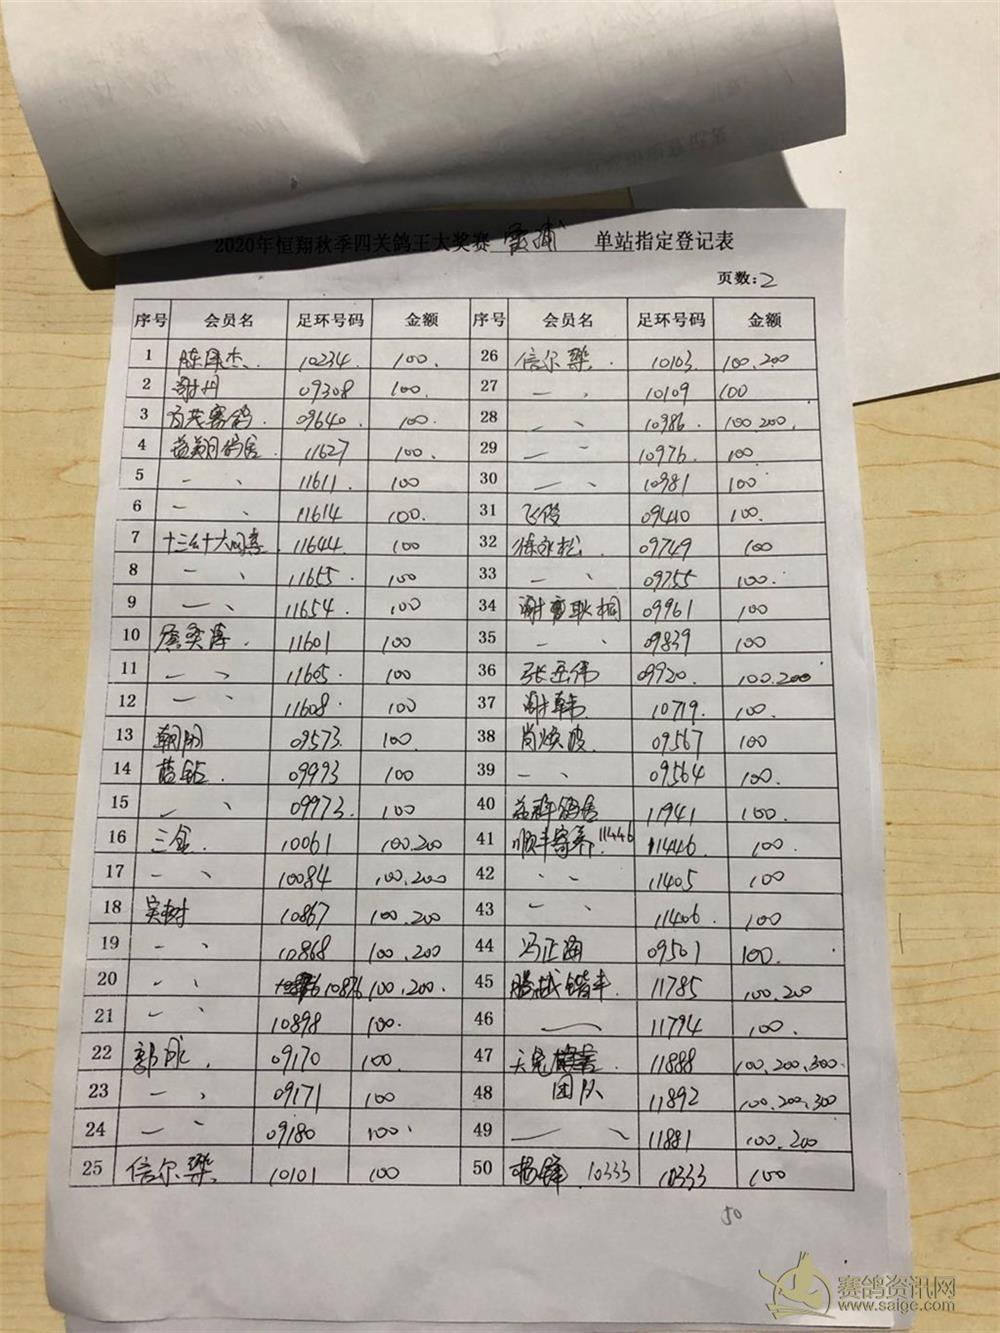 2020年恒翔秋季四关鸽王大奖赛 霞浦 单站指定登记表
页数:2
序号 会员名 足环号码 金额 序号 会员名 足环号码 金额
1 陈 杰. 10234. 100. 26 信尔乐. 10103. 100.200
2 谢丹 09308 100. 27 一、 10109 100
3 赛鸽. 09640. 100. 28 一、 10986 100.200.
4 益翔鸽舍. 11627 100. 29 一、 10976. 100.
5 一、 11611. 100 30 一、 10981 100.
6 一、 11614 100. 31 飞俊 09410 100.
7 11644. 100 32 徐永松. 09749 100
8 一、 11655. 100 33 一、 09755 100.
9 一、 11654. 100 34 谢 耿桐 09961 100
10 11601 100 35 一、 09839 100
11 一、 11605. 100 36 张 伟 09920. 100.200
12 一、 11608. 100 37 谢韩 10719. 100.
13 朝阳 09573. 100. 38 肖焕波. 09567 100
14 蓝钻. 09993 100 39 一、 09564 100.
15 一、 09973. 100 40 鸽舍 11941 100.
16 三金. 10061 100.200 41 顺丰寄养.11446 11446. 100.
17 一、 10084 100.200 42 、、 11405 100
18 10867 100.200 43 一、 11406. 100
19 一、 10868 100.200 44 冯正海 09501 100.
20 一、 10876 100.200. 45 腾越锴丰. 11785 100.200
21 一、 10898 100. 46 一 11794 100.
22 郭成. 09170 100. 47 天 11888 100.200.300.
23 一、 09171 100 48 团队 11892 100.200.300
24 一、 09180 100. 49 一、 11881 100.200
25 信尔乐 10101 100 50 杨锋.10333 10333 100
50
赛鸽资讯网
www.saige.com